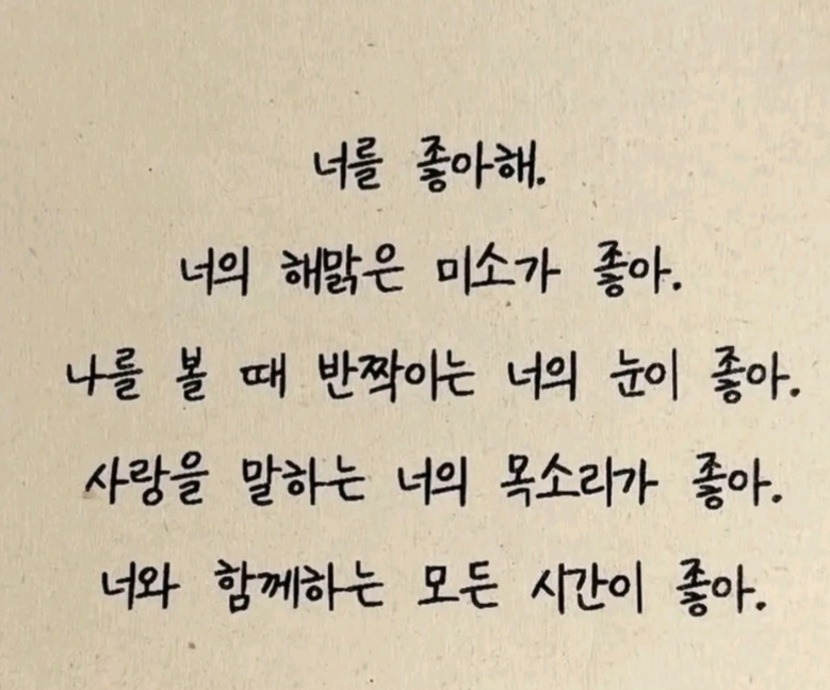 너를 좋아해.
너의 해맑은 미소가 좋아.
나를 볼 때 반짝이는 너의 눈이 좋아.
사랑을 말하는 너의 목소리가 좋아.
너와 함께하는 모든 시간이 좋아.